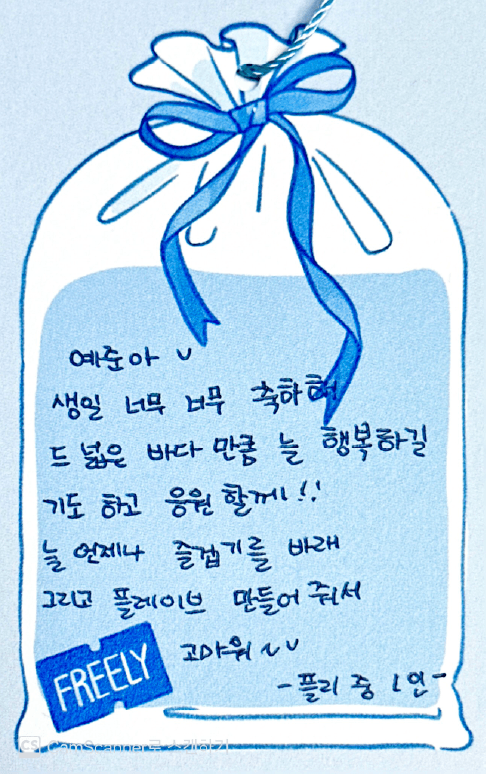 예준아 ᴗ
생일 너무 너무 축하해
드 넓은 바다 만큼 늘 행복하길
기도 하고 응원 할게!!
늘 언제나 즐겁기를 바래
그리고 플레이브 만들어 줘서
고마워 ~ᴗ
FREELY
-플리 중 1인-
CS CamScanner로 스캔하기